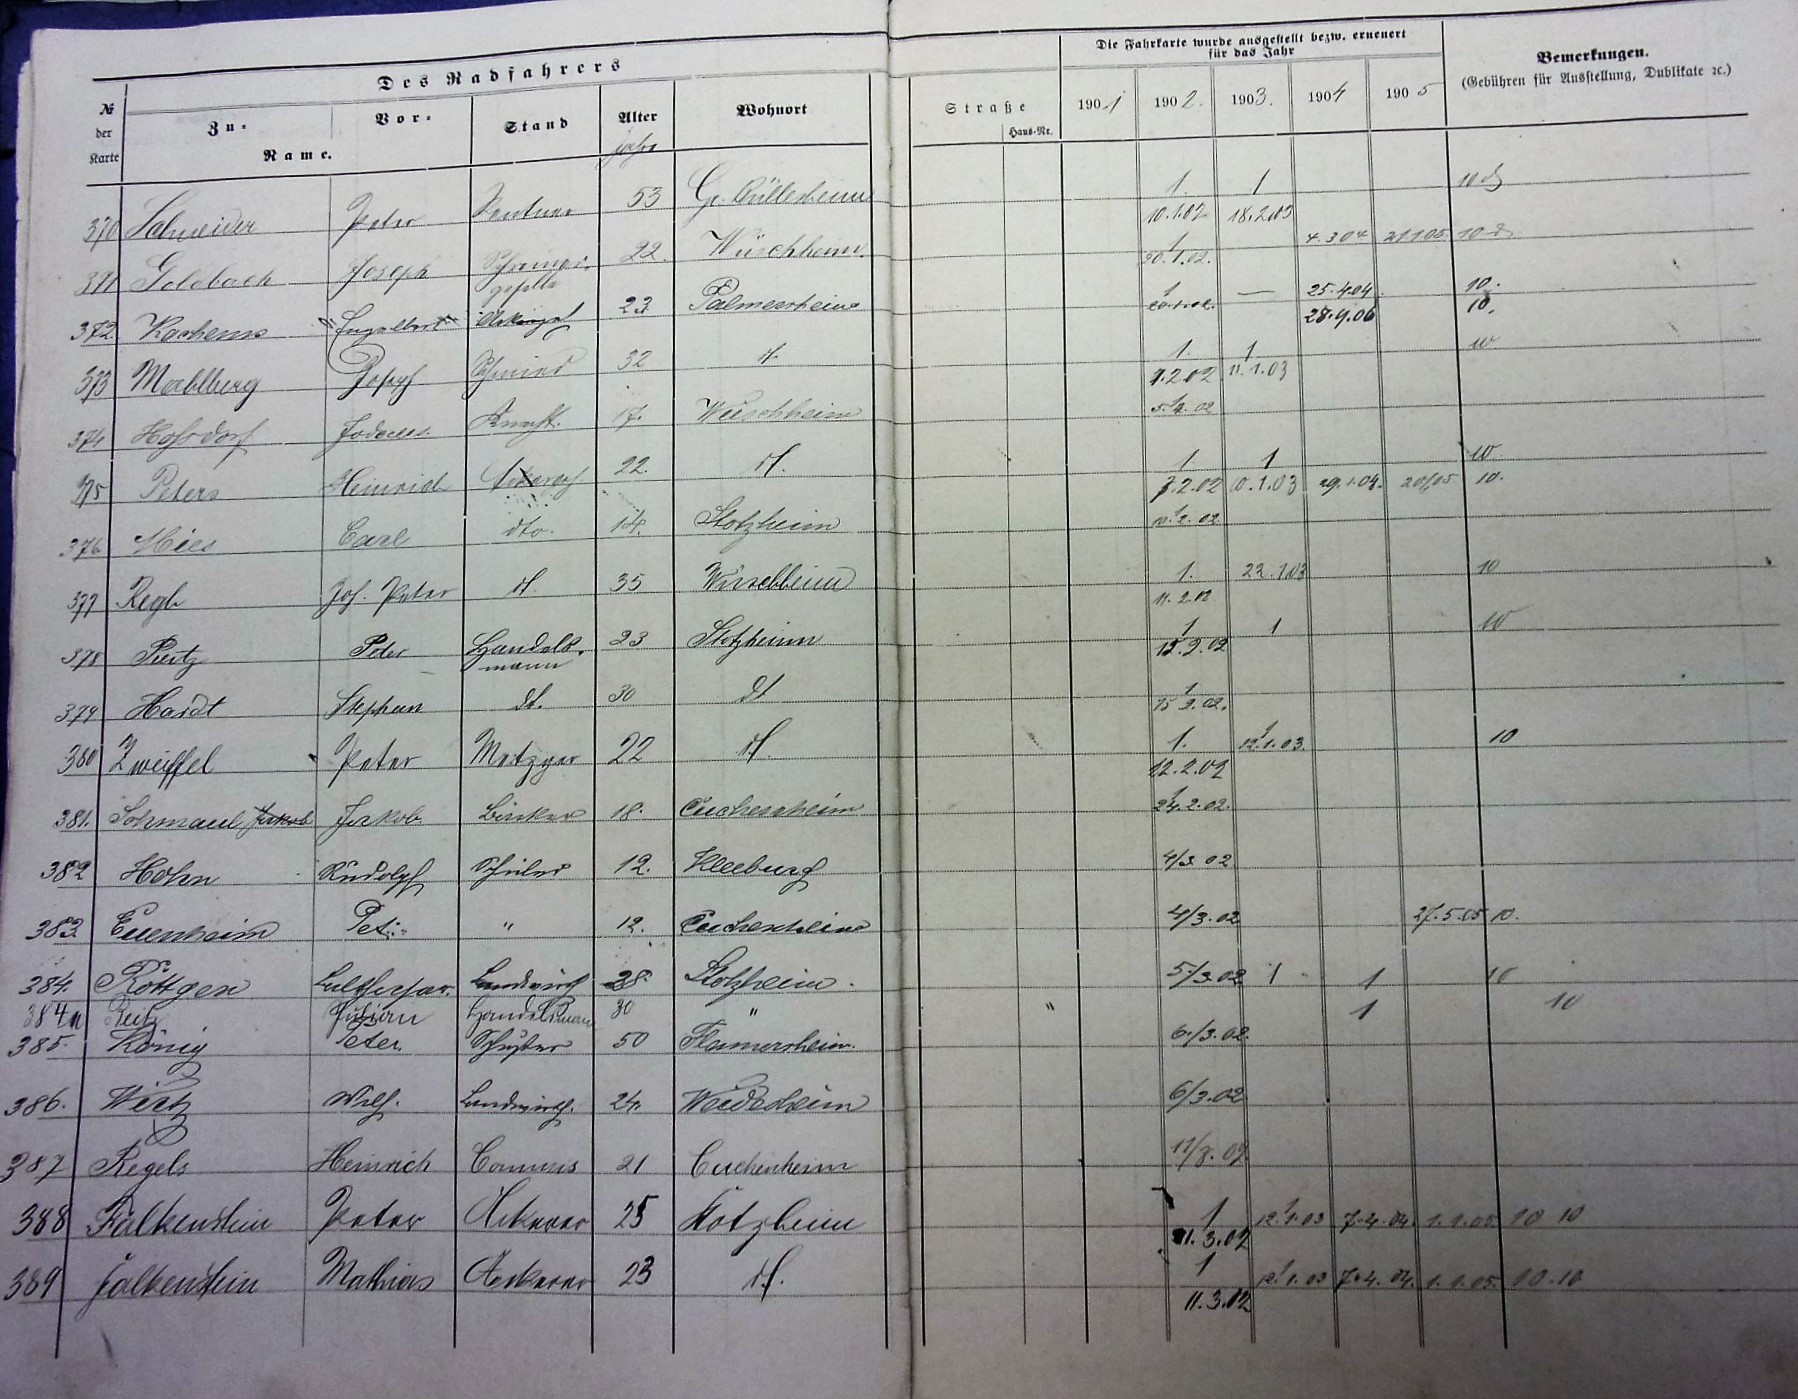 Des Radfahrers
Die Fahrkarte wurde ausgestellt bezw. erneuert für das Jahr
Bemerkungen.
(Gebühren für Ausstellung, Dublikate ꝛc.)
№ der Karte
Zu- Vor- Name.
Stand
Alter
Jahre
Wohnort
Straße
Haus-Nr.
1901 1902. 1903. 1904 1905
370 Schneider Peter Rentner 53 Gr. Büllesheim 1. 10.1.02 1 18.2.03 10 ₰
371 Goldbach Joseph 22. Wüschheim. 1 20.1.02. 4.3 04 21.1.05. 10
372. Kachems Engelbert 23 Palmersheim 1 — 25.4.04 10.
28.9.06 10.
373 Mahlberg Joseph Schmied 32 dt. 1. 1.2.02 1 11.1.03 10
374 Jodocus Knecht. 17. Wüschheim 02
375 Peters Heinrich 22. dt. 1 7.2.02 1 10.1.03 29.1.04. 10. 10.
376 Hies Carl dto. 14. Stotzheim 10.2.02
377 Joh. Peter dt. 35 Wüschheim 1. 11.2.02 22.1.03 10
378 Peter Handels-mann 23 Stotzheim 1 12.2.02 1 10
379 Hardt Stephan dt. 30 dt 1 15 2.02.
380 Zweiffel Peter Metzger 22 dt. 1. 12.2.02 1 12.1.03. 10
381. Jakob Jakob Bäcker 18. Cuchenheim 1 24.2.02.
382 Hohn Rudolph Schüler 12. Kleeburg 4/3 02
383. Euenheim Pet. " 12. Cuchenheim 4/3.02 27.5.05 10.
384. Röttgen Landwirth 28. Stotzheim 5/3.02 1 1 10
384a Handelsmann 30 " " 1 10
385. König Peter Schuster 50 Flamersheim. 6/3.02.
386. Wirtz Wilh. Landwirth. 24. Weidesheim 6/3.02
387 Regels Heinrich Commis 21 Cuchenheim 11/3.02
388 Falkenstein Peter Ackerer 25 Stotzheim 1 11.3.02 1 12.1.03 7.4.04. 1.1.05. 10 10
389 Falkenstein Mathias Ackerer 23 dt. 1 11.3.02 1 12.1.03 7.4.04. 1.1.05. 10.10